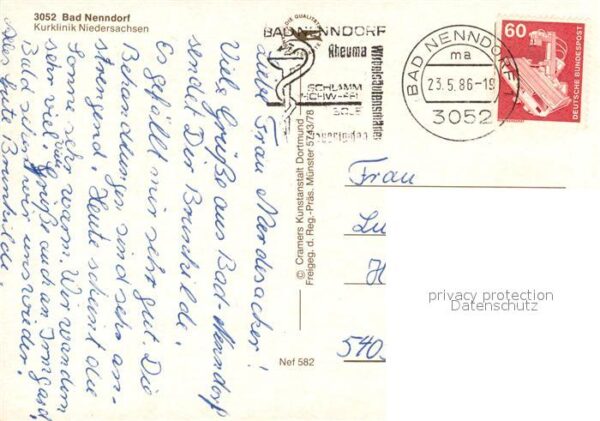 3052 Bad Nenndorf
Kurklinik Niedersachsen
Liebe Frau Mardesacher!
Viele Grüße aus Bad-Nenndorf
sendet Der Brunhilde.
Es gefällt mir sehr gut. Die
Behandlungen sind sehr an-
strengend. Heute scheint die
Sonne sehr warm. Wir wandern
sehr viel. Viele Grüße auch an Irmgard
Bald sehen wir uns wieder!
Alles Gute Brunhilde.
© Cramers Kunstanstalt Dortmund —
Freigeg. d. Reg.-Präs. Münster 5743/78
Nef 582
DIE QUALITÄT
BAD NENNDORF
Rheuma
Wirbelsäulenschäden
SCHLAMM
SCHWEFEL
SOLE
BAD NENNDORF 1
ma
23.5.86-19
3052
60
DEUTSCHE BUNDESPOST
Frau
Lu
H
540
privacy protection
Datenschutz